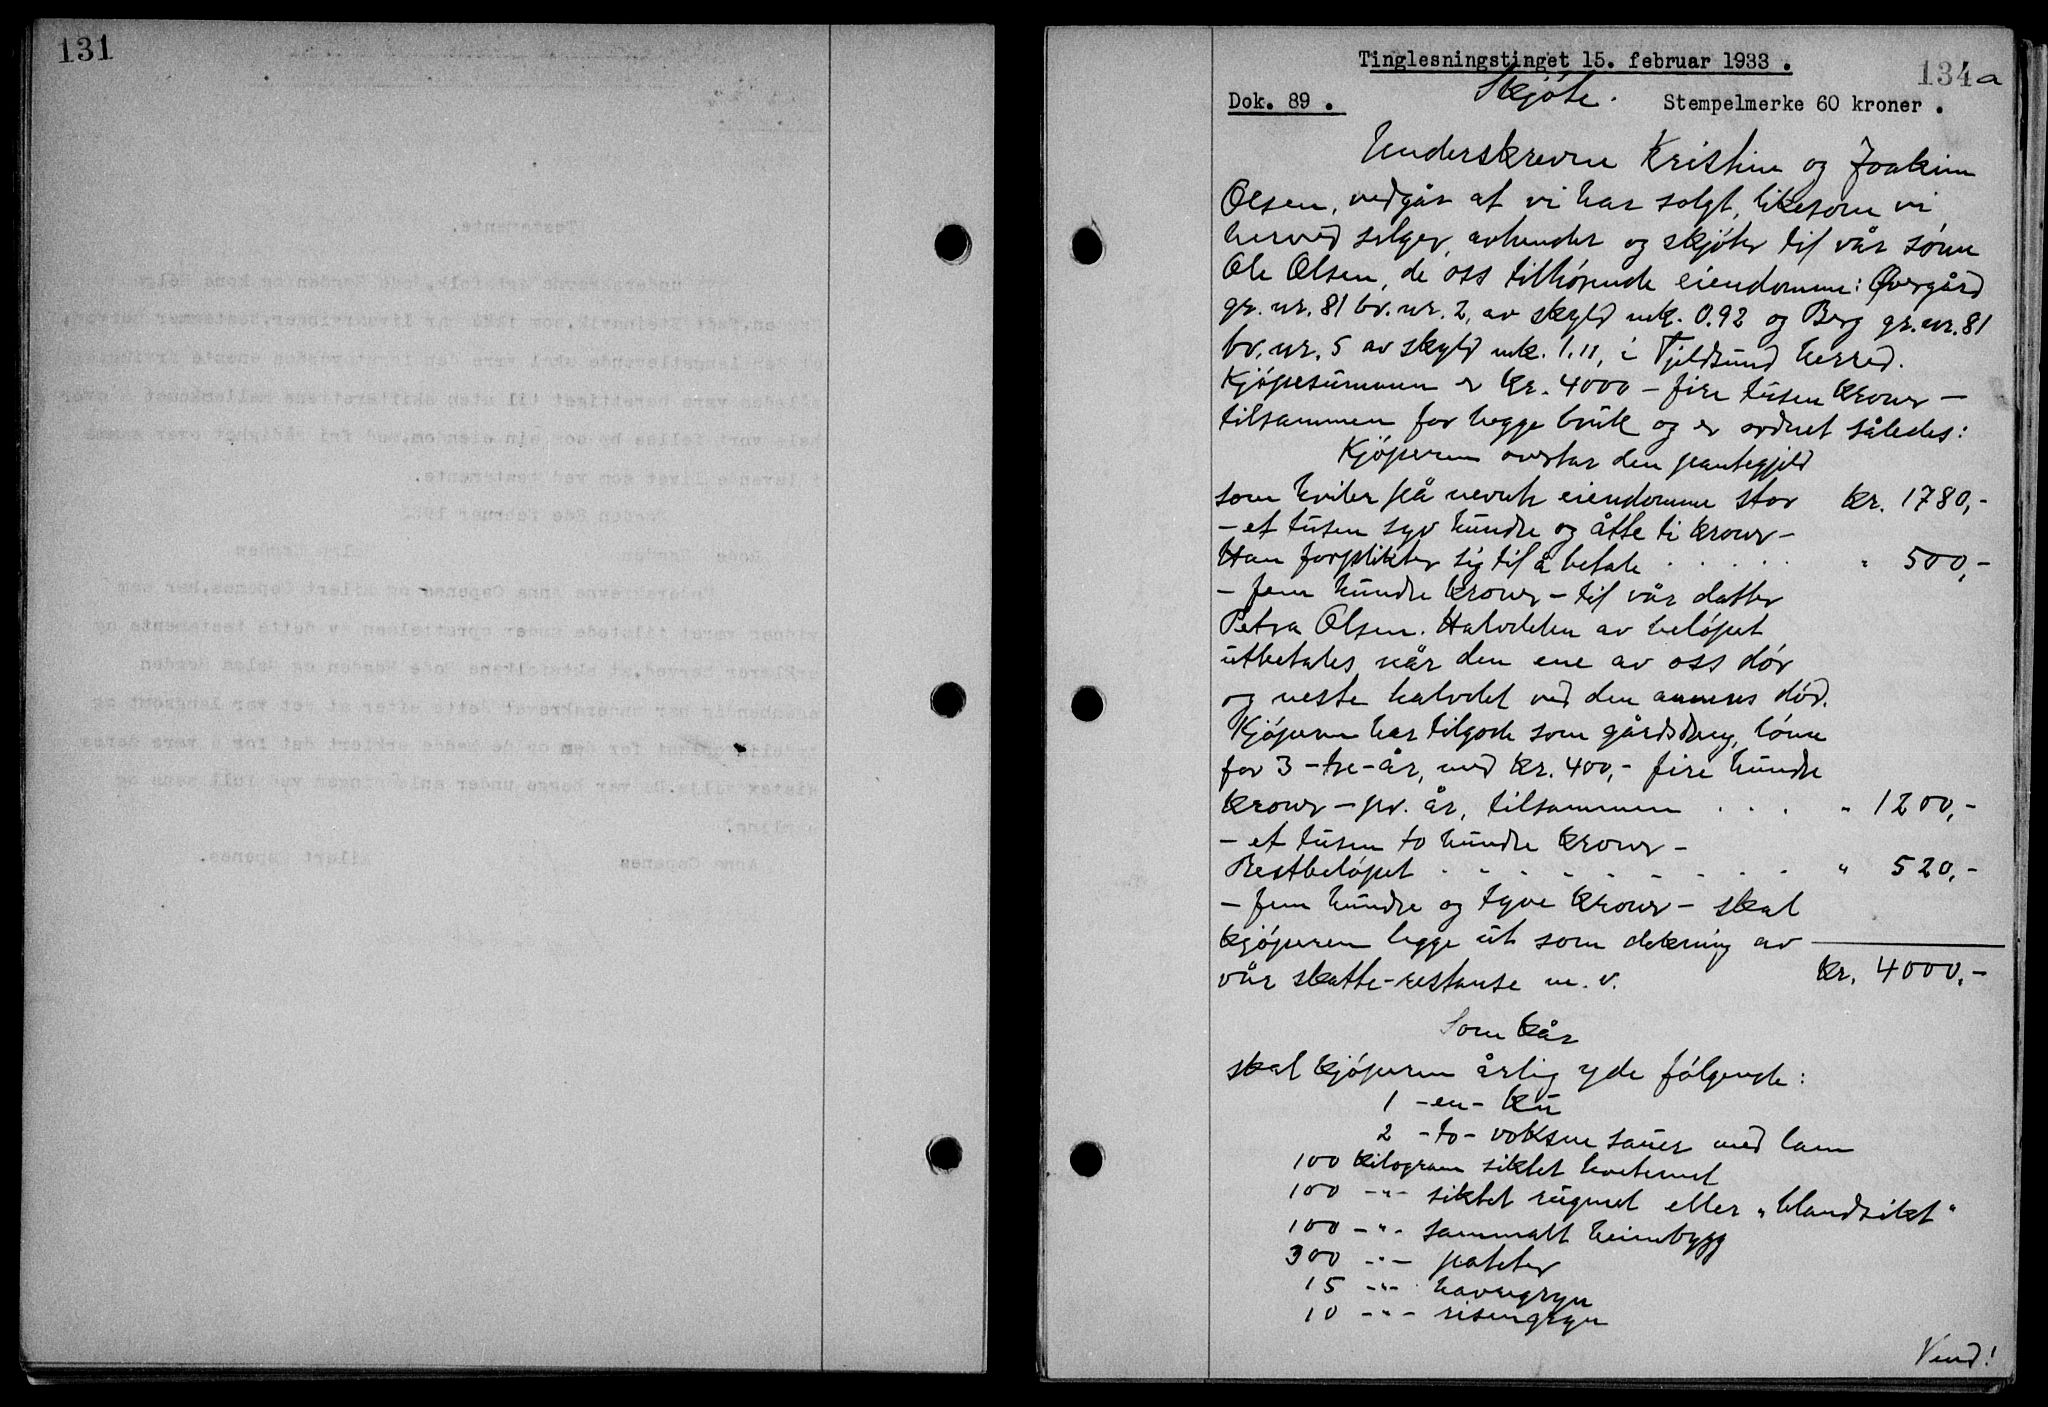 131
Tinglesningstinget 15. februar 1933 .
134a
Skjøte.
Dok. 89 .
Stempelmerke 60 kroner .
Underskrevne Kristine og Joakim
Olsen, vedgår at vi har solgt, likesom vi
herved selger, avhender og skjøter til vår sønn
Ole Olsen, de oss tilhørende eiendomme: Øvergård
gr. nr. 81 br. nr. 2, av skyld mk. 0.92 og Berg gr. nr. 81
br. nr. 5 av skyld mk. 1.11, i Tjeldsund herred.
Kjøpesummen er kr. 4000 - fire tusen kroner -
tilsammen for begge bruk og er ordnet således:
Kjøperen overtar den pantegjeld
som hviler på nevnte eiendomme stor kr. 1780,-
- et tusen syv hundre og åtte ti kroner -
Han forplikter sig til å betale . . . . . " 500,-
- fem hundre kroner - til vår datter
Petra Olsen. Halvdelen av beløpet
utbetales når den ene av oss dør
og neste halvdel ved den annens død.
Kjøperen har tilgode som gårdsdreng, lønn
for 3 -tre- år, med kr. 400,- fire hundre
kroner - pr. år, tilsammen . . . " 1200,-
- et tusen to hundre kroner -
Restbeløpet . . . . . . . . . " 520,-
- fem hundre og tyve kroner - skal
kjøperen legge ut som dekning av
vår skatte-restanse m. v. kr. 4000,-
Som kår
skal kjøperen årlig yde følgende:
1 -en- ku
2 -to- voksne sauer med lam
100 kilogram siktet hvetemel
100 -"- siktet rugmel eller "blandsikt"
100 -"- sammalt heimbygg
300 -"- poteter
15 -"- havregryn
10 -"- risengryn
Vend!